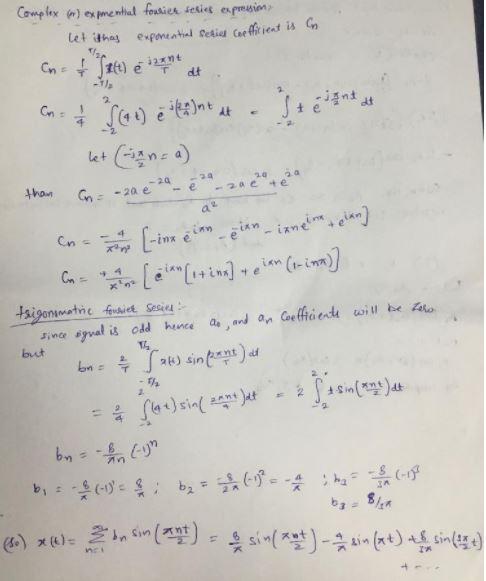 Complex (or) exponential fourier series expression,
Let it has exponential series coefficient is Cn
Cn = 1/T ∫_{-T/2}^{T/2} x(t) e^{-j2πnt/T} dt
Cn = 1/4 ∫_{-2}^{2} (4t) e^{-j(2π/4)nt} dt = ∫_{-2}^{2} t e^{-jπ/2 nt} dt
Let (-jπ/2 n = a)
than Cn = (-2a e^{-2a} - e^{-2a} - 2a e^{2a} + e^{2a}) / a²
Cn = -4/π²n² [-inπ e^{-iπn} - e^{-iπn} - iπn e^{inπ} + e^{iπn}]
Cn = +4/π²n² [e^{-iπn}[1+inπ] + e^{iπn}(1-inπ)]
Trigonometric fourier series:-
since signal is odd hence a₀, and an Coefficients will be zero
but bn = 2/T ∫_{-T/2}^{T/2} x(t) sin(2πnt/T) dt
= 2/4 ∫_{-2}^{2} (4t) sin(2πnt/4) dt = 2 ∫_{-2}^{2} t sin(πnt/2) dt
bn = -8/πn (-1)^n
b₁ = -8/π (-1)¹ = 8/π ; b₂ = -8/2π (-1)² = -4/π ; b₃ = -8/3π (-1)³
b₃ = 8/3π
(So) x(t) = Σ_{n=1}^{∞} bn sin(πnt/2) = 8/π sin(πnt/2) - 4/π sin(πt) + 8/3π sin(3π/2 t)
+ - - .